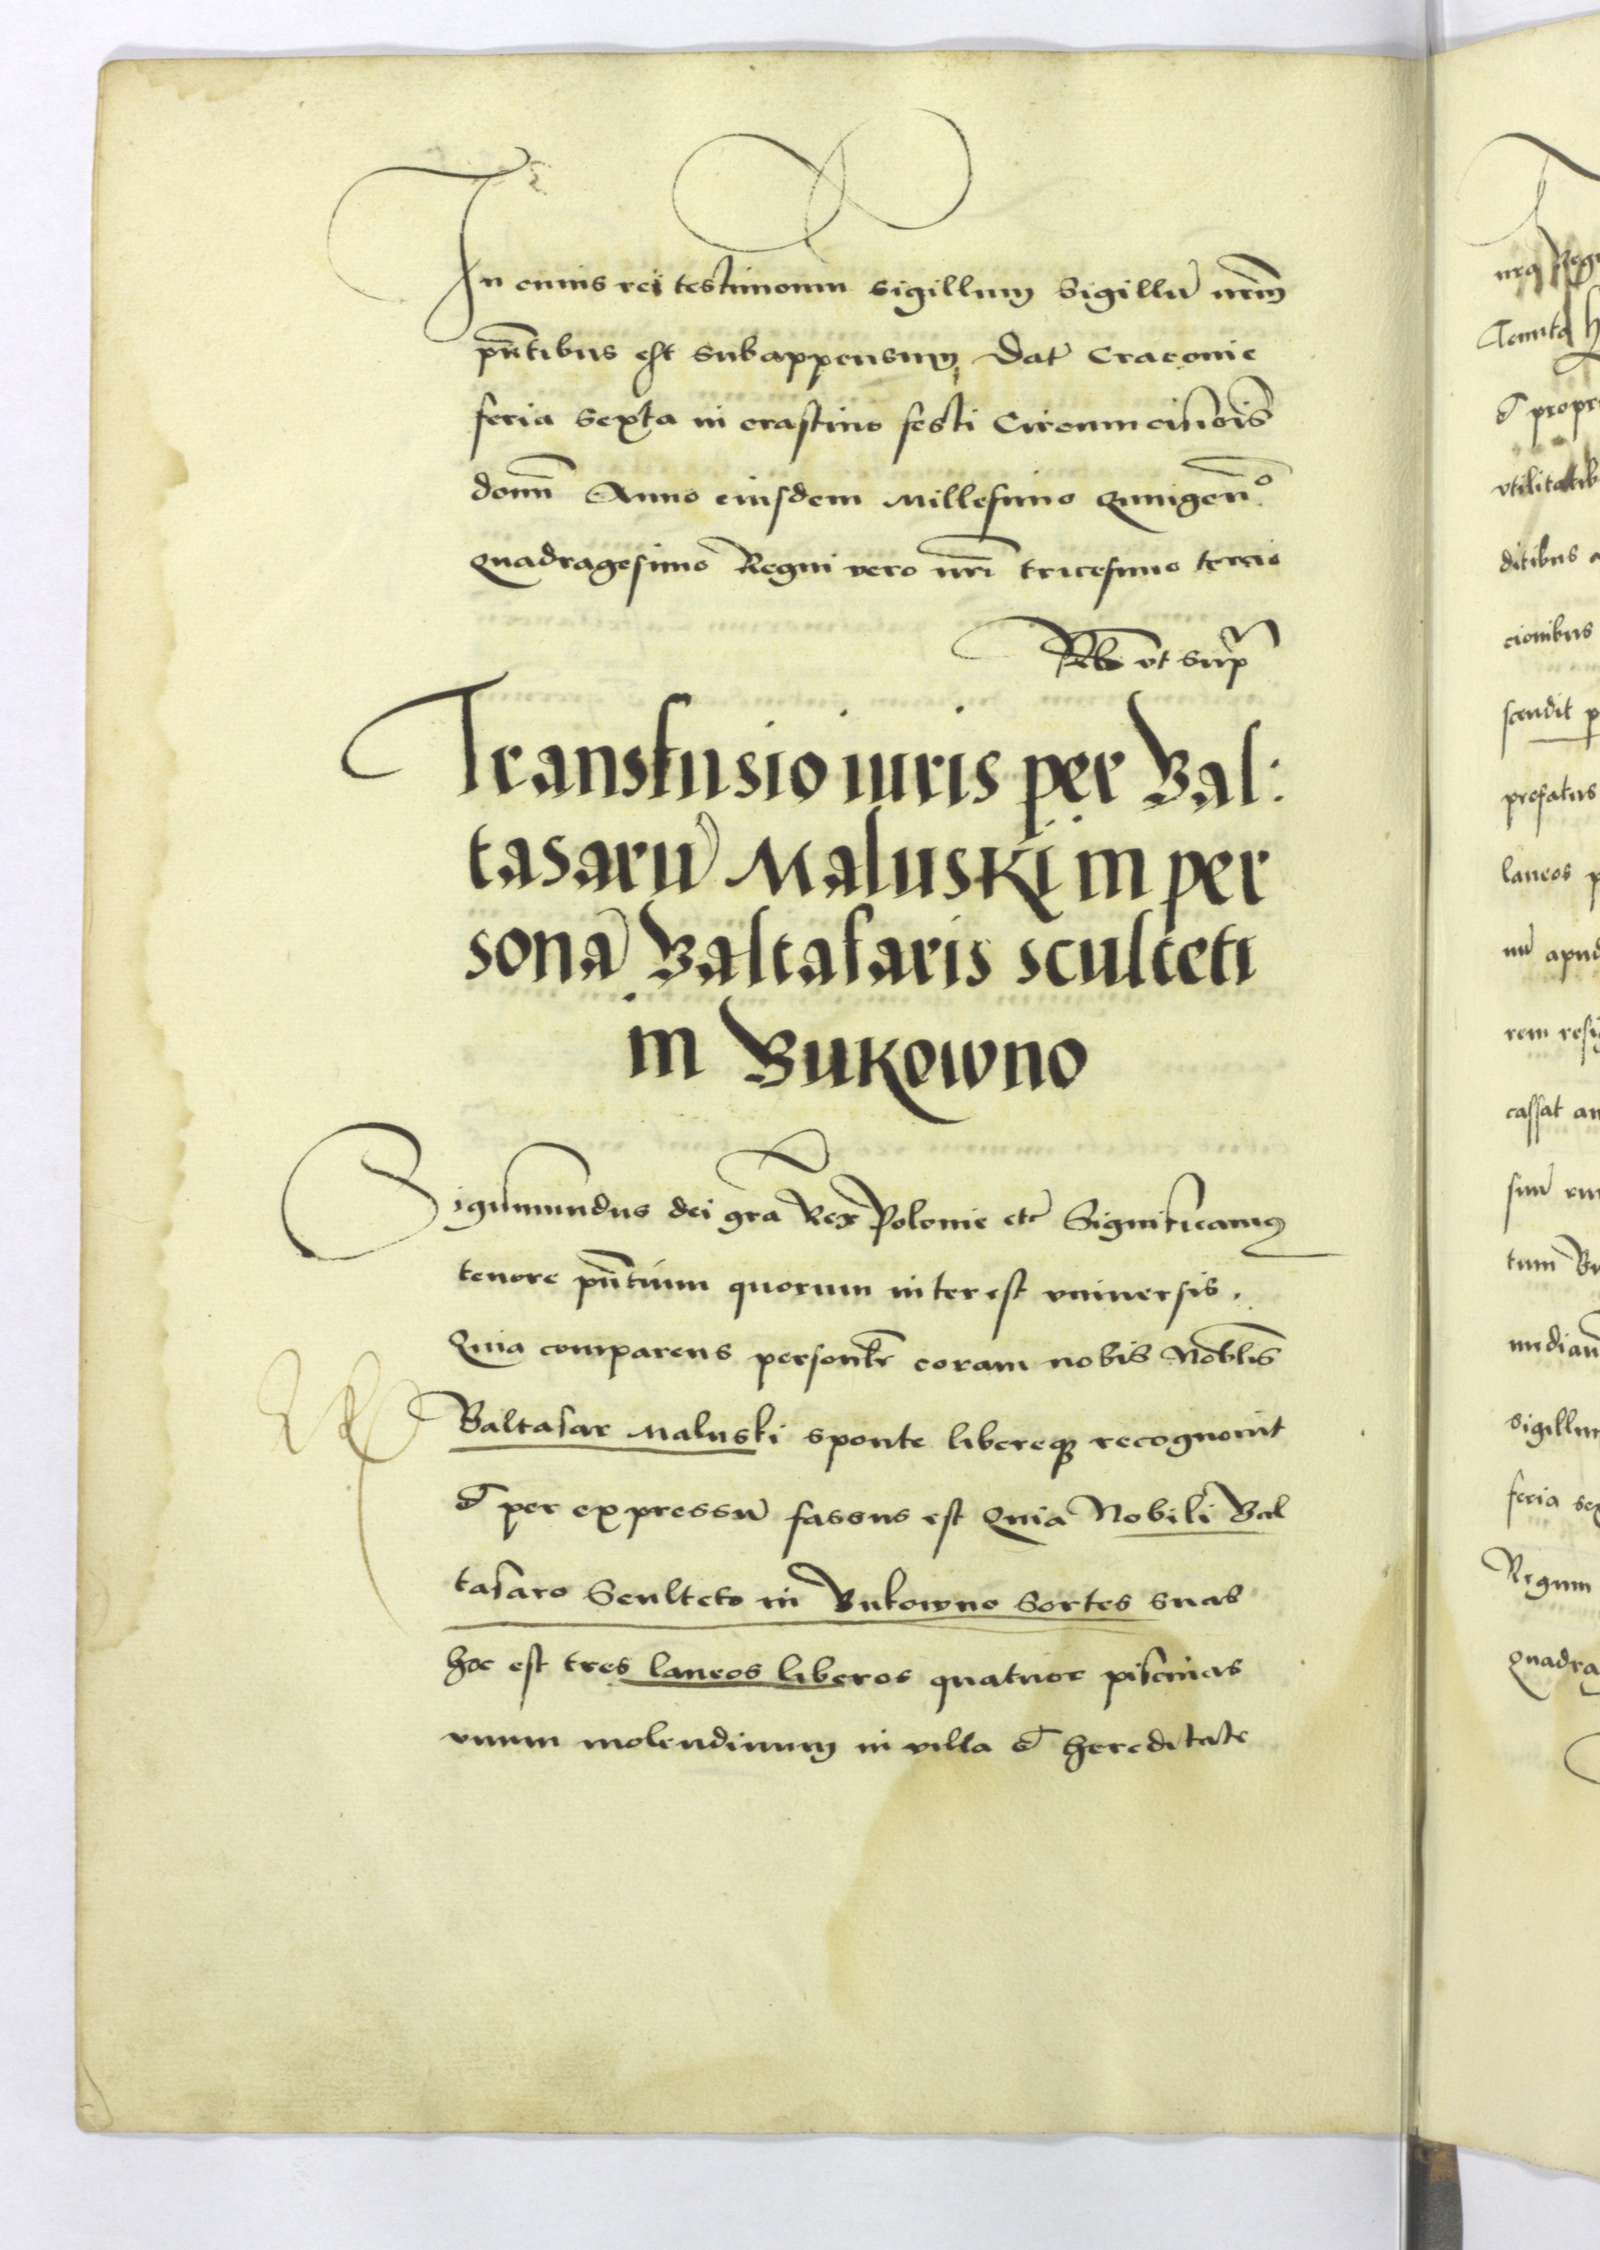 In cuius rei testimonium sigillum Sigillū nrm̄
pn̄tibus est subappensum, Dat̄ Cracovie
feria sexta in crastino festi Circumcisiōis
domī Anno eiusdem Millesimo Quingenᵒ
quadragesimo Regni vero nrī tricesimo tercio
ut sup
Transfusio iuris per Bal:
tasarū Maluskj in per
sonā Baltasaris sculteti
in Bukowno
Sigismundus dei grā Rex Polonie etc̄ Significamus
tenore pn̄tium quorum interest universis.
Quia comparens personlr̄ coram nobis Nobl̄is
Baltasar Maluski sponte libereqz recognovit
et per expressū fassus est Quia Nobili Bal
tasaro Sculteto in Bukowno Sortes suas
hoc est tres laneos liberos quatuor piscinas
vnum molendinum in villa et hereditate
Tenuta
et propri
vtilitatib
ditibus a
cionibus
scendit p
prefatus
laneos p
nū apud
rem resig
cassat an
tum Bu
median
sigillum
feria sex
Regum
Quadra